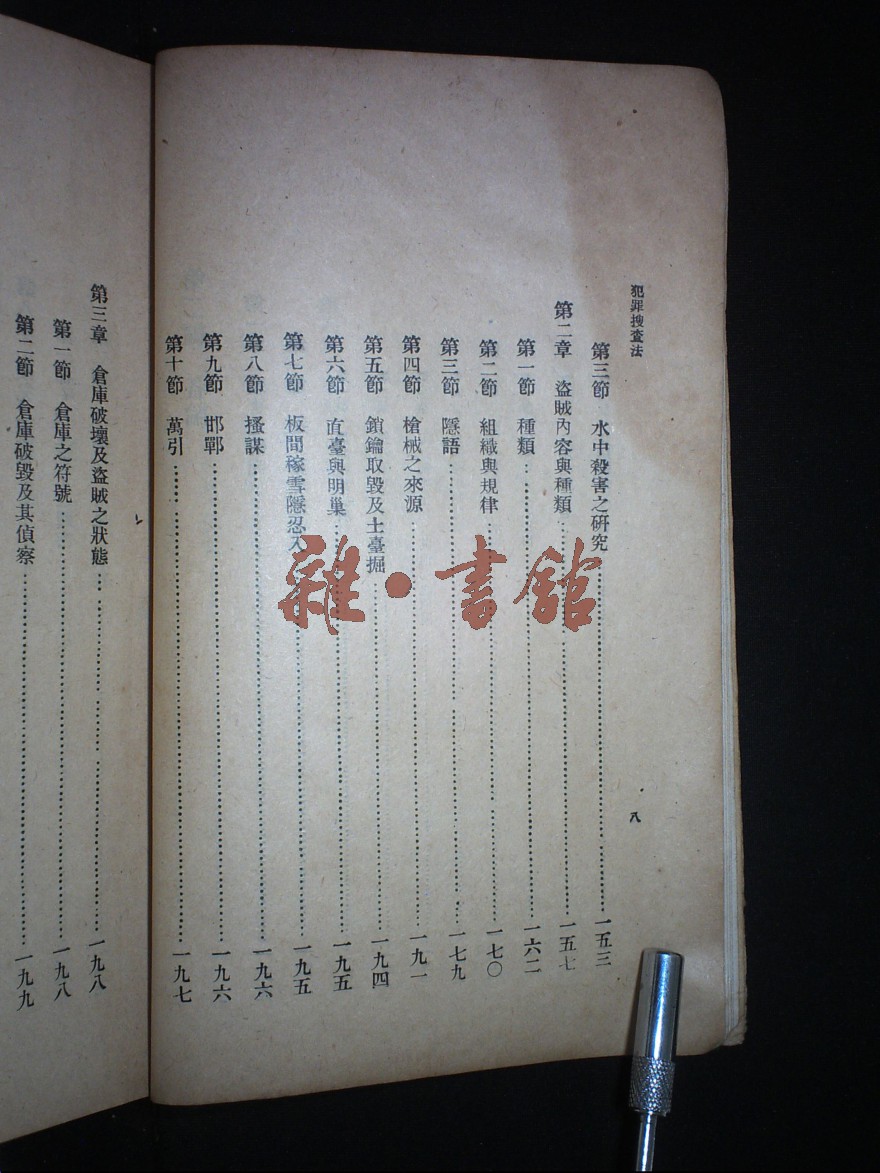 犯罪搜查法
八
第三節 水中殺害之研究……一五三
第二章 盜賊內容與種類……一五七
第一節 種類……一六二
第二節 組織與規律……一七〇
第三節 隱語……一七九
第四節 槍械之來源……一九一
第五節 鎖鑰取毀及土臺掘……一九四
第六節 直臺與明巢……一九五
第七節 板間稼雪隱忍入……一九五
第八節 搔謀……一九六
第九節 邯鄲……一九六
第十節 萬引……一九七
第三章 倉庫破壞及盜賊之狀態……一九八
第一節 倉庫之符號……一九八
第二節 倉庫破毀及其偵察……一九九
雜·書館